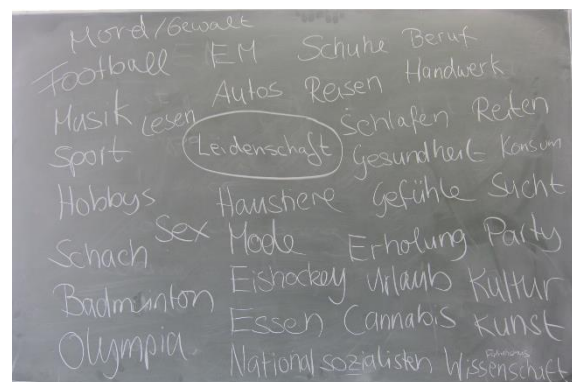 Mord/Gewalt
EM Schuhe Beruf
Football
Autos Reisen Handwerk
Musik Lesen
Schlafen Reiten
Leidenschaft
Sport
Gesundheit Konsum
Hobbys
Haustiere Gefühle Sucht
Sex Mode Erholung Party
Schach
Eishockey Urlaub Kultur
Badminton
Essen Cannabis Kunst
Olympia
Nationalsozialisten Wissenschaft